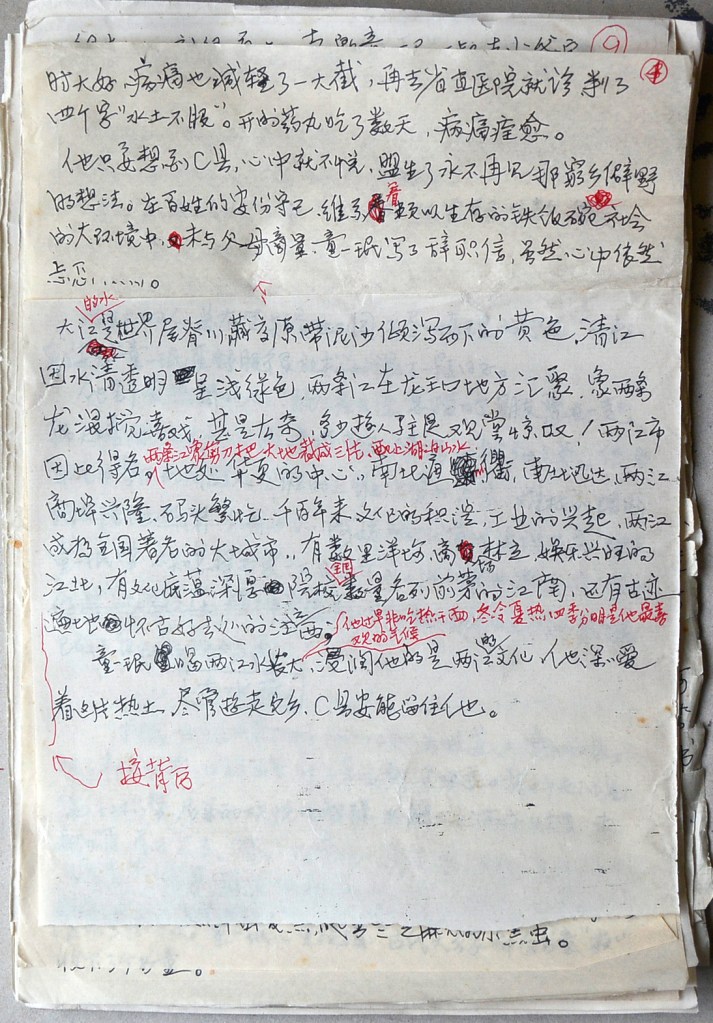 9
4
时大好，病痛也减轻了一大截，再去省直医院就诊判了
四个字“水土不服”。开的药丸吃了数天，病痛痊愈。
他只要想到C县，心中就不悦，盟生了永不再见那穷乡僻野
的想法。在百姓的安份守己，维系着赖以生存的铁饭碗社会
的大环境中，未与父母商量，童一珉写了辞职信，虽然心中依然
忐忑……。
的水
大江是世界屋脊川藏高原带泥沙倾泻而下的黄色，清江
因水清透明呈浅绿色，两条江在龙王口地方汇聚，象两条
龙混搅嬉戏，甚是古奇，多少路人驻足观赏惊叹！两江市
两条江象剪刀把大地裁成三块，配上湖泊山水
因此得名。地处华夏的中心，南北通衢，南北迅达，两江
商埠兴隆，码头繁忙，千百年来文化的积淀，工业的兴起，两江
成为全国著名的大城市，有数里洋场，高楼林立，娱乐兴旺的
江北，有文化底蕴深厚院校数量全国名列前茅的江南，还有古迹
遍地怀古好去处的江西。
他过早非吃热干面，冬冷夏热四季分明是他最喜
欢的气候
童一珉喝两江水长大，浸润他的是两江的文化，他深爱
着这片热土，尽管接走完乡，C县安能留住他。
接背后
点虫。
。